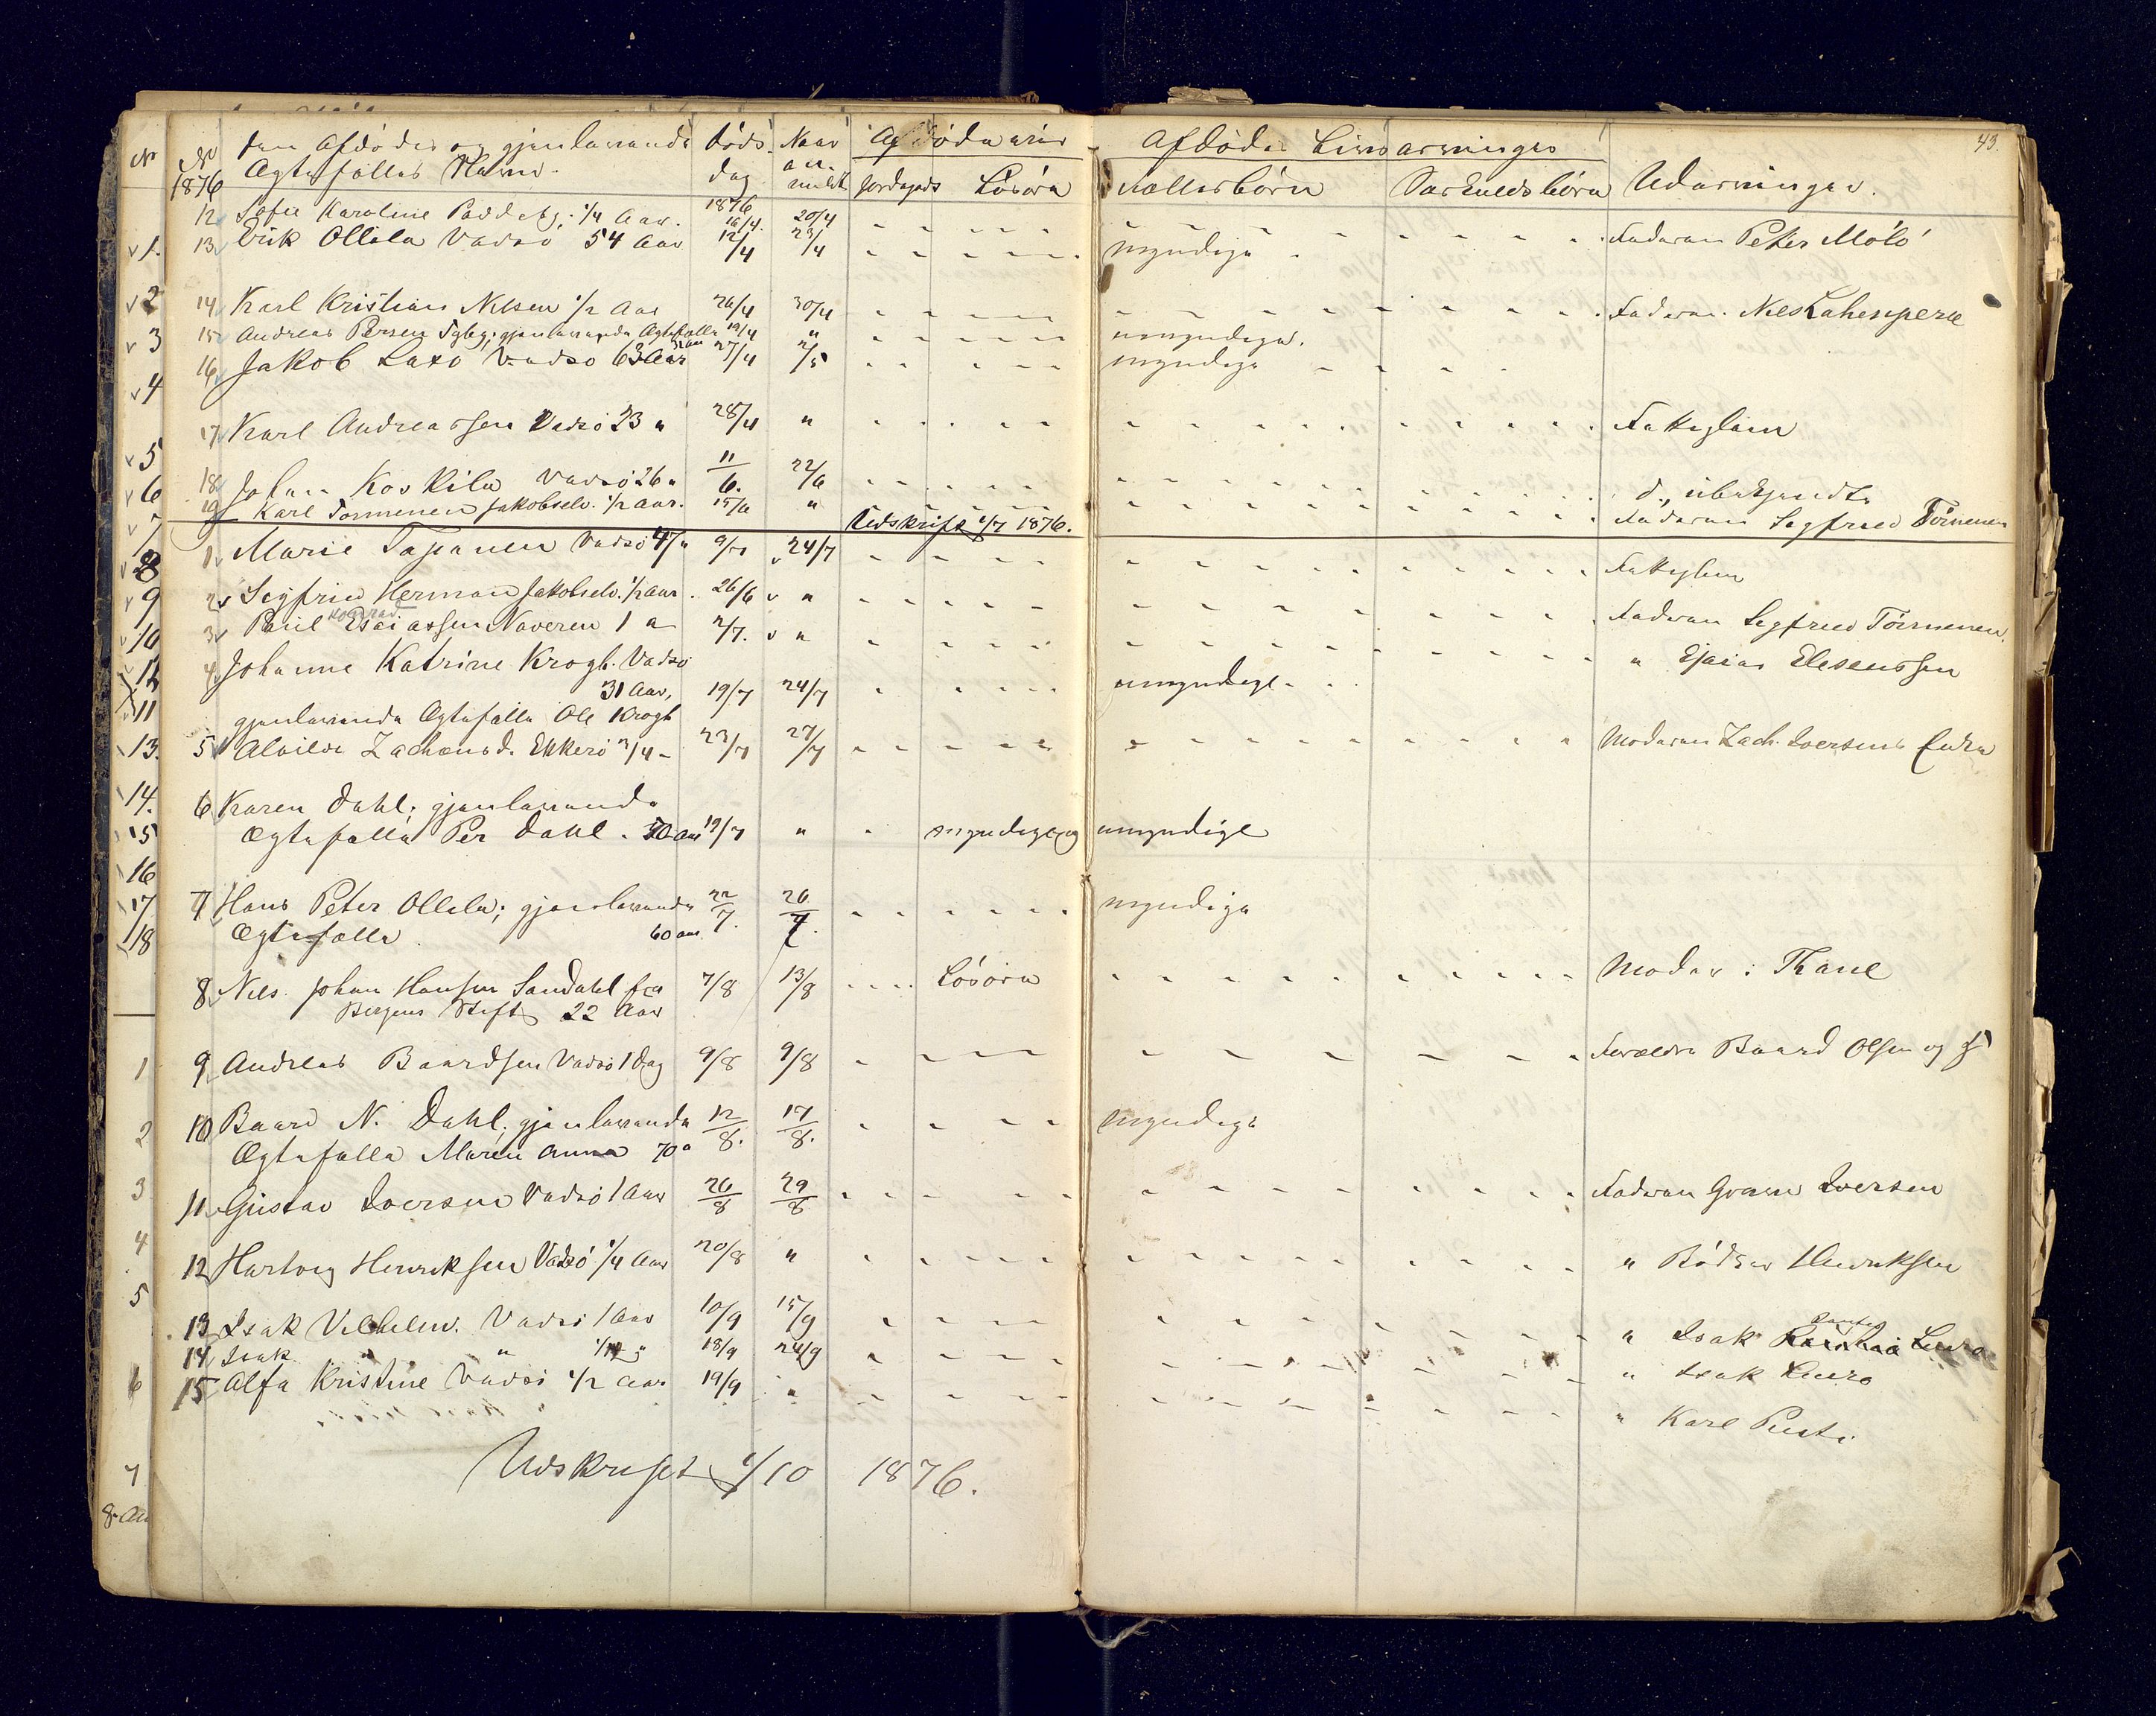 No No Den Afdödes og gjenlevende Döds Naar Afdöde ever Afdödes Livsarvinger 43.
1876 Ægtefælles Navn. dag an- meldt Jordegods Lösöre Kollerbörn Særkuldsbörn Udarvinger.
12 Sofie Karoline Paddeby; 1/4 Aar. 1876 16/4. 20/4 - - - - Faderen Peter Mölö
v 1. 13 Erik Ollila Vadsö 54 Aar 12/4 23/4 - - - - myndige -
v 2 14 Karl Kristian Nilsen 1/2 Aar 26/4 30/4 - - - - Faderen Nils Lahenpere
v 3 15 Andreas Persen gjenlevende Ægtefælle 19/4 " - - - - umyndige.
v 4 16 Jakob Laxo Vadsö 63 Aar 27/4 2/5 - - - - myndige - - - -
17 Karl Andreassen Vadsö 23 " 28/4 " - - - - Fattiglem
v 5 18 Johan Koskila Vadsö 26 " 11/6. 22/6 - - - - d., ubekjendte
v 6 19 Karl Tormenen Jakobselv. 1/2 Aar. 15/6 " - - - - Faderen Sigfried Törmenen
v 7 Udskrift 1/7 1876.
v 8 1 Marie Tapanen Vadsö 47 " 9/7 24/7 - - - - Fattiglem
v 9 2 Sigfried Herman Jakobselv. 1/2 Aar. 26/6 v " - - - - Faderen Sigfried Törmenen.
Konrad
v 10 3 Paul Esaiassen Naveren 1 a 2/7. v " - - - - " Esaias Elesenssen
12 4 Johanne Katrine Krogh. Vadsö
31 Aar, 19/7 24/7 - - - - umyndige - -
11 gjenlevende Ægtefælle Ole Krogh
13. 5 Alvilde Zachariasd. Ekkerö 3/4 - 23/7 27/7 - - - - Moderen Zach. Iversens Enke
14. 6 Karen Dahl; gjenlevende
15 Ægtefælle Per Dahl. 50 Aar 19/7 " - myndige og umyndige
16
17 7 Hans Peter Ollila; gjenlevende 22/7. 26/7. - - - - myndige
18 Ægtefælle 60 aar
8 Nils Johan Hansen Sandahl fra 7/8 13/8 - - - Lösöre - - - - Moder i Thane
Bergens Stift 22 Aar
1 9 Andreas Baardsen Vadsö 1 Dag 9/8 9/8 - - - - Forældre Baard Olsen og H
2 10 Baard N. Dahl; gjenlevende 12/8. 17/8. - - - - myndige
Ægtefælle Maren Anna 70 a
3 11 Gustav Iversen Vadsö 1 Aar 26/8 29/8 - - - - Faderen Iversen
4 12 Hartvig Henriksen Vadsö 1/4 Aar 20/8 " - - - - " Bödker Henriksen
5 13 Isak Vilhelm. Vadsö 1 Aar 10/9 15/9 - - - - " Isak Luiro
14 Isak " " 18/9 24/9 - - - - " Isak Luiro
6 15 Alfa Kristine Vadsö 1/2 Aar 19/9 " - - - - " Karl Pusti
7 Udskrift 1/10 1876.
8